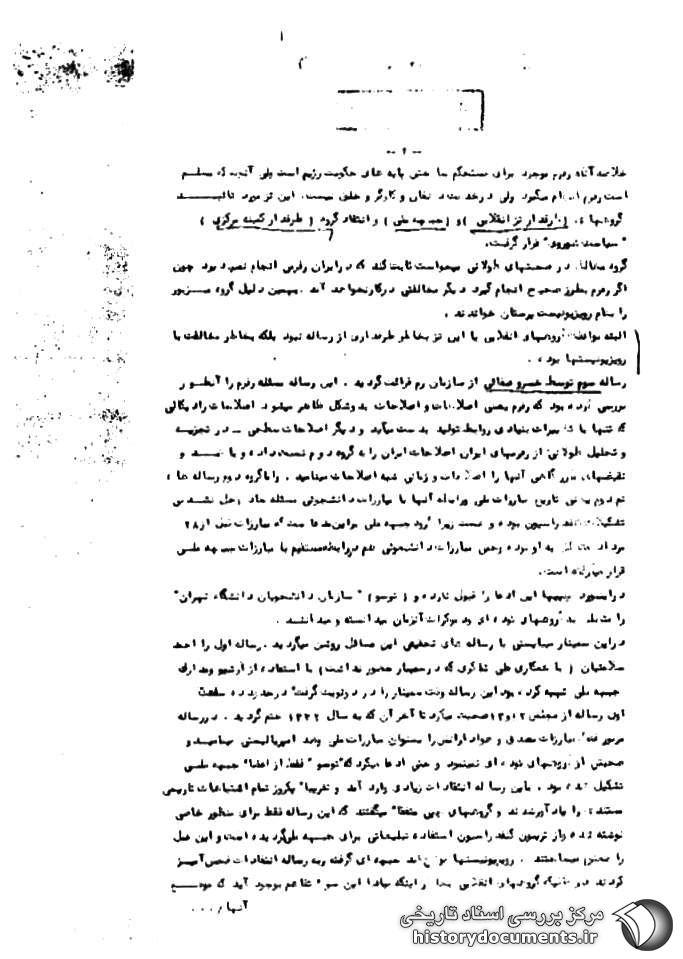 -- ۲ --
خلاصه آنکه رفرم موجود برای مستحکم ساختن پایه های حکومت رژیم است ولی آنچه که مسلم
است رفرم انجام میگیرد ولی در خدمت دهقان و کارگر و خلق نیست. این تز مورد تائید
گروههای (طرفدار تز انقلابی) و (جبهه ملی) و انتقاد گروه (طرفدار کمیته مرکزی)
" سیاست شوروی" قرار گرفت.
گروه مخالف در صحبتهای طولانی میخواست ثابت کند که در ایران رفرمی انجام نمیشود چون
اگر رفرم بطرز صحیح انجام گیرد دیگر مخالفتی در کار نخواهد آمد. بهمین دلیل گروه مزبور
را بنام رویزیونیست پرستان خواندند.
البته موافقت گروههای انقلابی با این تز بخاطر طرفداری از رساله نبود بلکه بخاطر مخالفت با
رویزیونیستها بود.
رساله سوم توسط خسرو صفائی از سازمان رم قرائت گردید. این رساله مسئله رفرم را آنطور
بررسی کرده بود که رفرم یعنی اصلاحات و اصلاحات بدو شکل ظاهر میشود اصلاحات رادیکالی
که تنها با تغییرات بنیادی روابط تولید بدست میآید و دیگر اصلاحات سطحی - در تجزیه
و تحلیل طولانی از رفرمهای ایران اصلاحات ایران را به گروه دوم نسبت داده و با ضد و
نقیضهای گاهی آنها را اصلاحات و زمانی شبه اصلاحات مینامید. و اما گروه دوم رساله ها
تم دوم یعنی تاریخ مبارزات ملی و رابطه آنها با مبارزات دانشجوئی مسئله حاد و حل نشدنی
تشکیلات کنفدراسیون بوده و هست زیرا گروه جبهه ملی براین عقیده است که مبارزات قبل از ۲۸
مرداد بوده وحتی مبارزات دانشجوئی هم در رابطه مستقیم با مبارزات جبهه ملی
قرار میگرفته است.
در اینمورد چپیها این ادعا را قبول نکرده و (توسو) " سازمان دانشجویان دانشگاه تهران"
را متعلق به گروههای توده ای و دموکرات آنزمان میدانسته و میدانند.
در این سمینار میبایستی با رساله های تحقیقی این مسائل روشن میگردید. رساله اول را احمد
سلامتیان (با همکاری علی شاکری که در سمینار حضور نداشت) با استفاده از آرشیو و مدارک
جبهه ملی تهیه کرده بود این رساله وقت سمینار را در دو نوبت گرفت " در حدود ده ساعت
اول رساله از مجلس ۱۲ و ۱۳ صحبت میکرد تا آخر آن که به سال ۱۳۳۲ ختم گردید. در رساله
مزبور فقط مبارزات مصدق و هوادارانش را بعنوان مبارزات ملی و ضد امپریالیستی مینامید و
صحبتی از گروههای توده ای نمینمود و حتی ادعا میکرد که "توسو" فقط از اعضا جبهه ملی
تشکیل شده بود. باین رساله انتقادات زیادی وارد آمد و تقریبا" یکروز تمام اشتباهات تاریخی
مستند را یادآور شدند و گروههای چپی متفقا" میگفتند که این رساله فقط برای منظور خاصی
نوشته شده و از تریبون کنفدراسیون استفاده تبلیغاتی برای جبهه ملی گردیده است و این عمل
را محکوم میساختند. رویزیونیستها جبهه ای گرفته و به رساله انتقادات فحش آمیز
کردند در حالیکه گروههای انقلابی از اینکه مبادا این سوء تفاهم بوجود آید که موضع
آنها / ...
مرکز بررسی اسناد تاریخی
historydocuments.ir